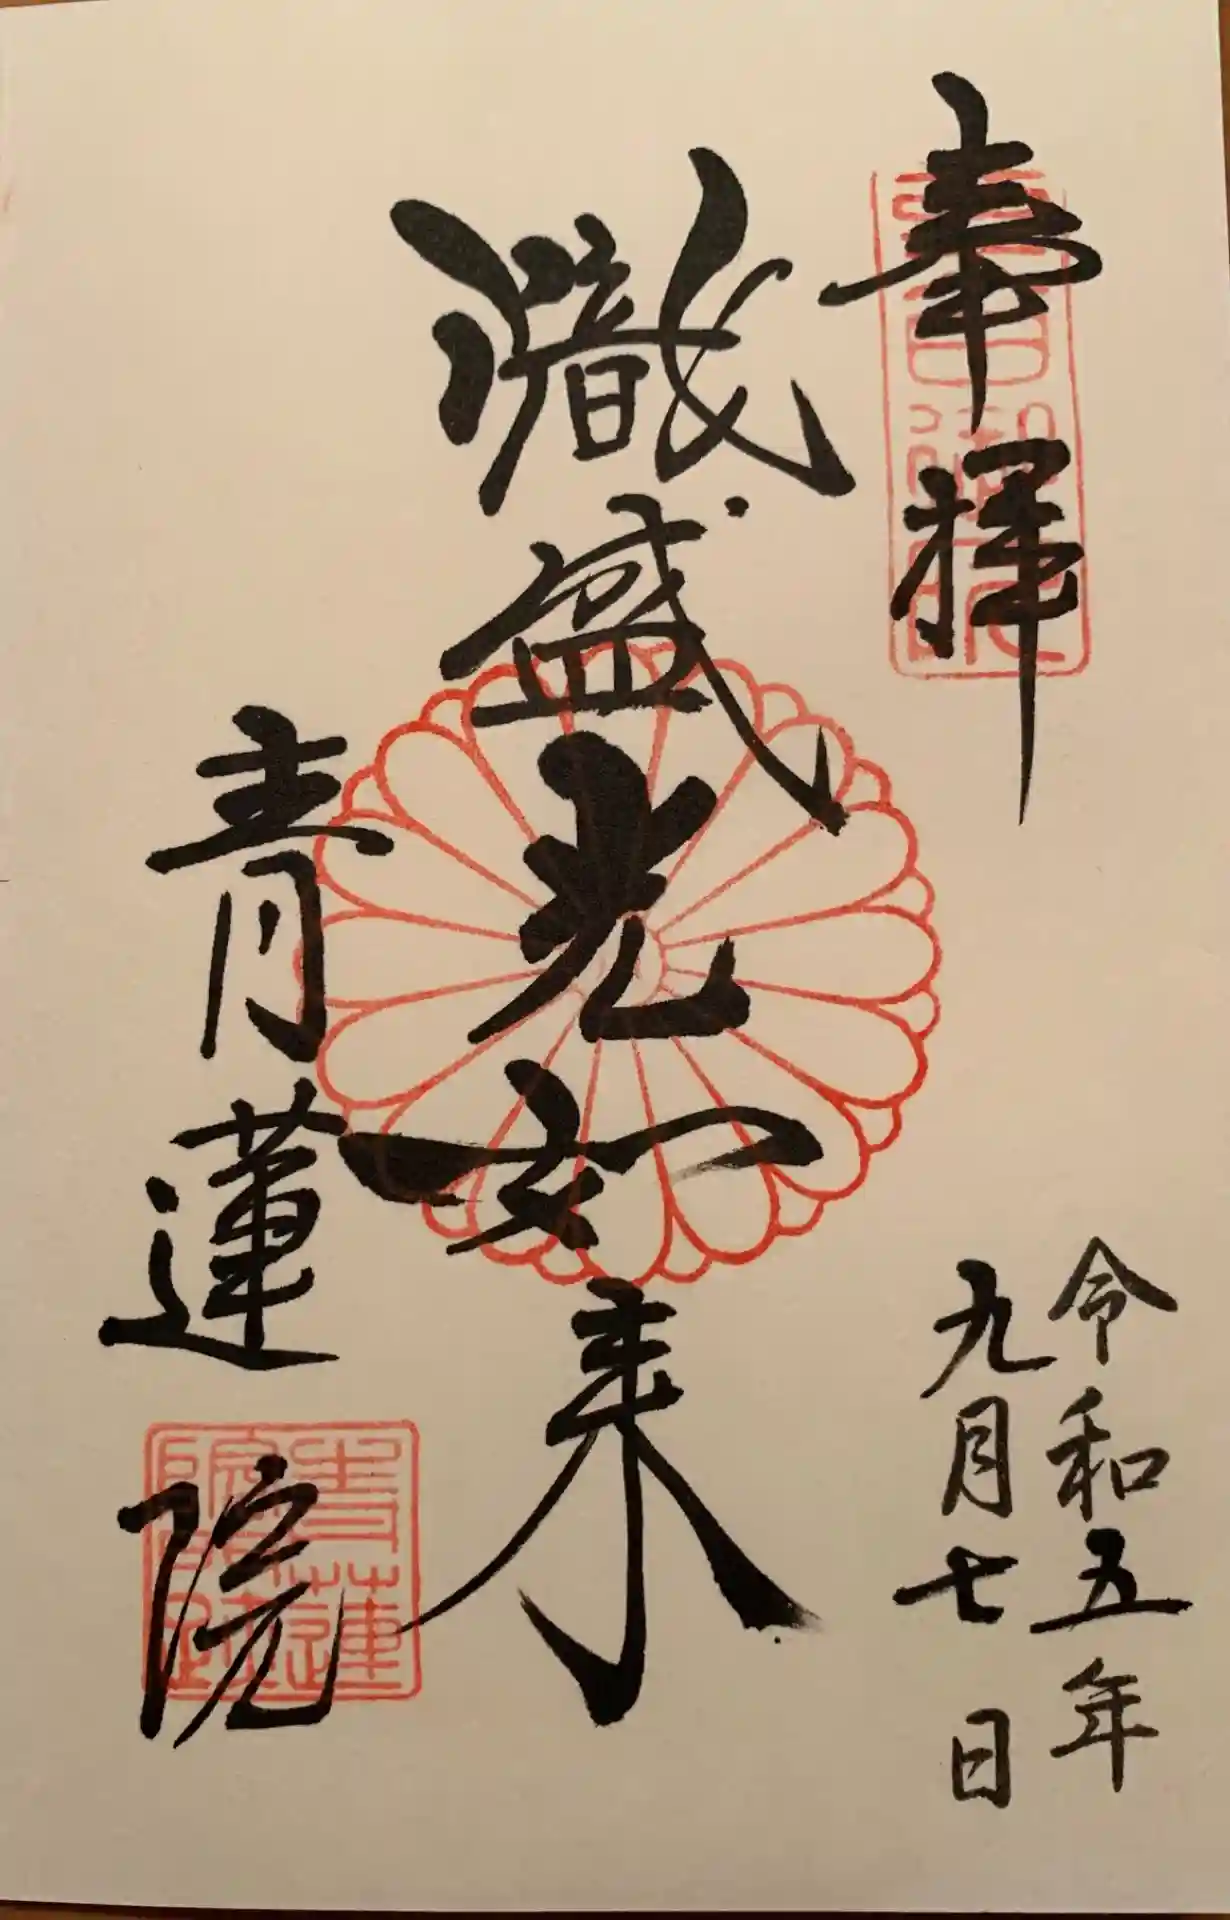 奉拝
令和五年
九月七日
熾盛光如来
青蓮院
青蓮
院門跡